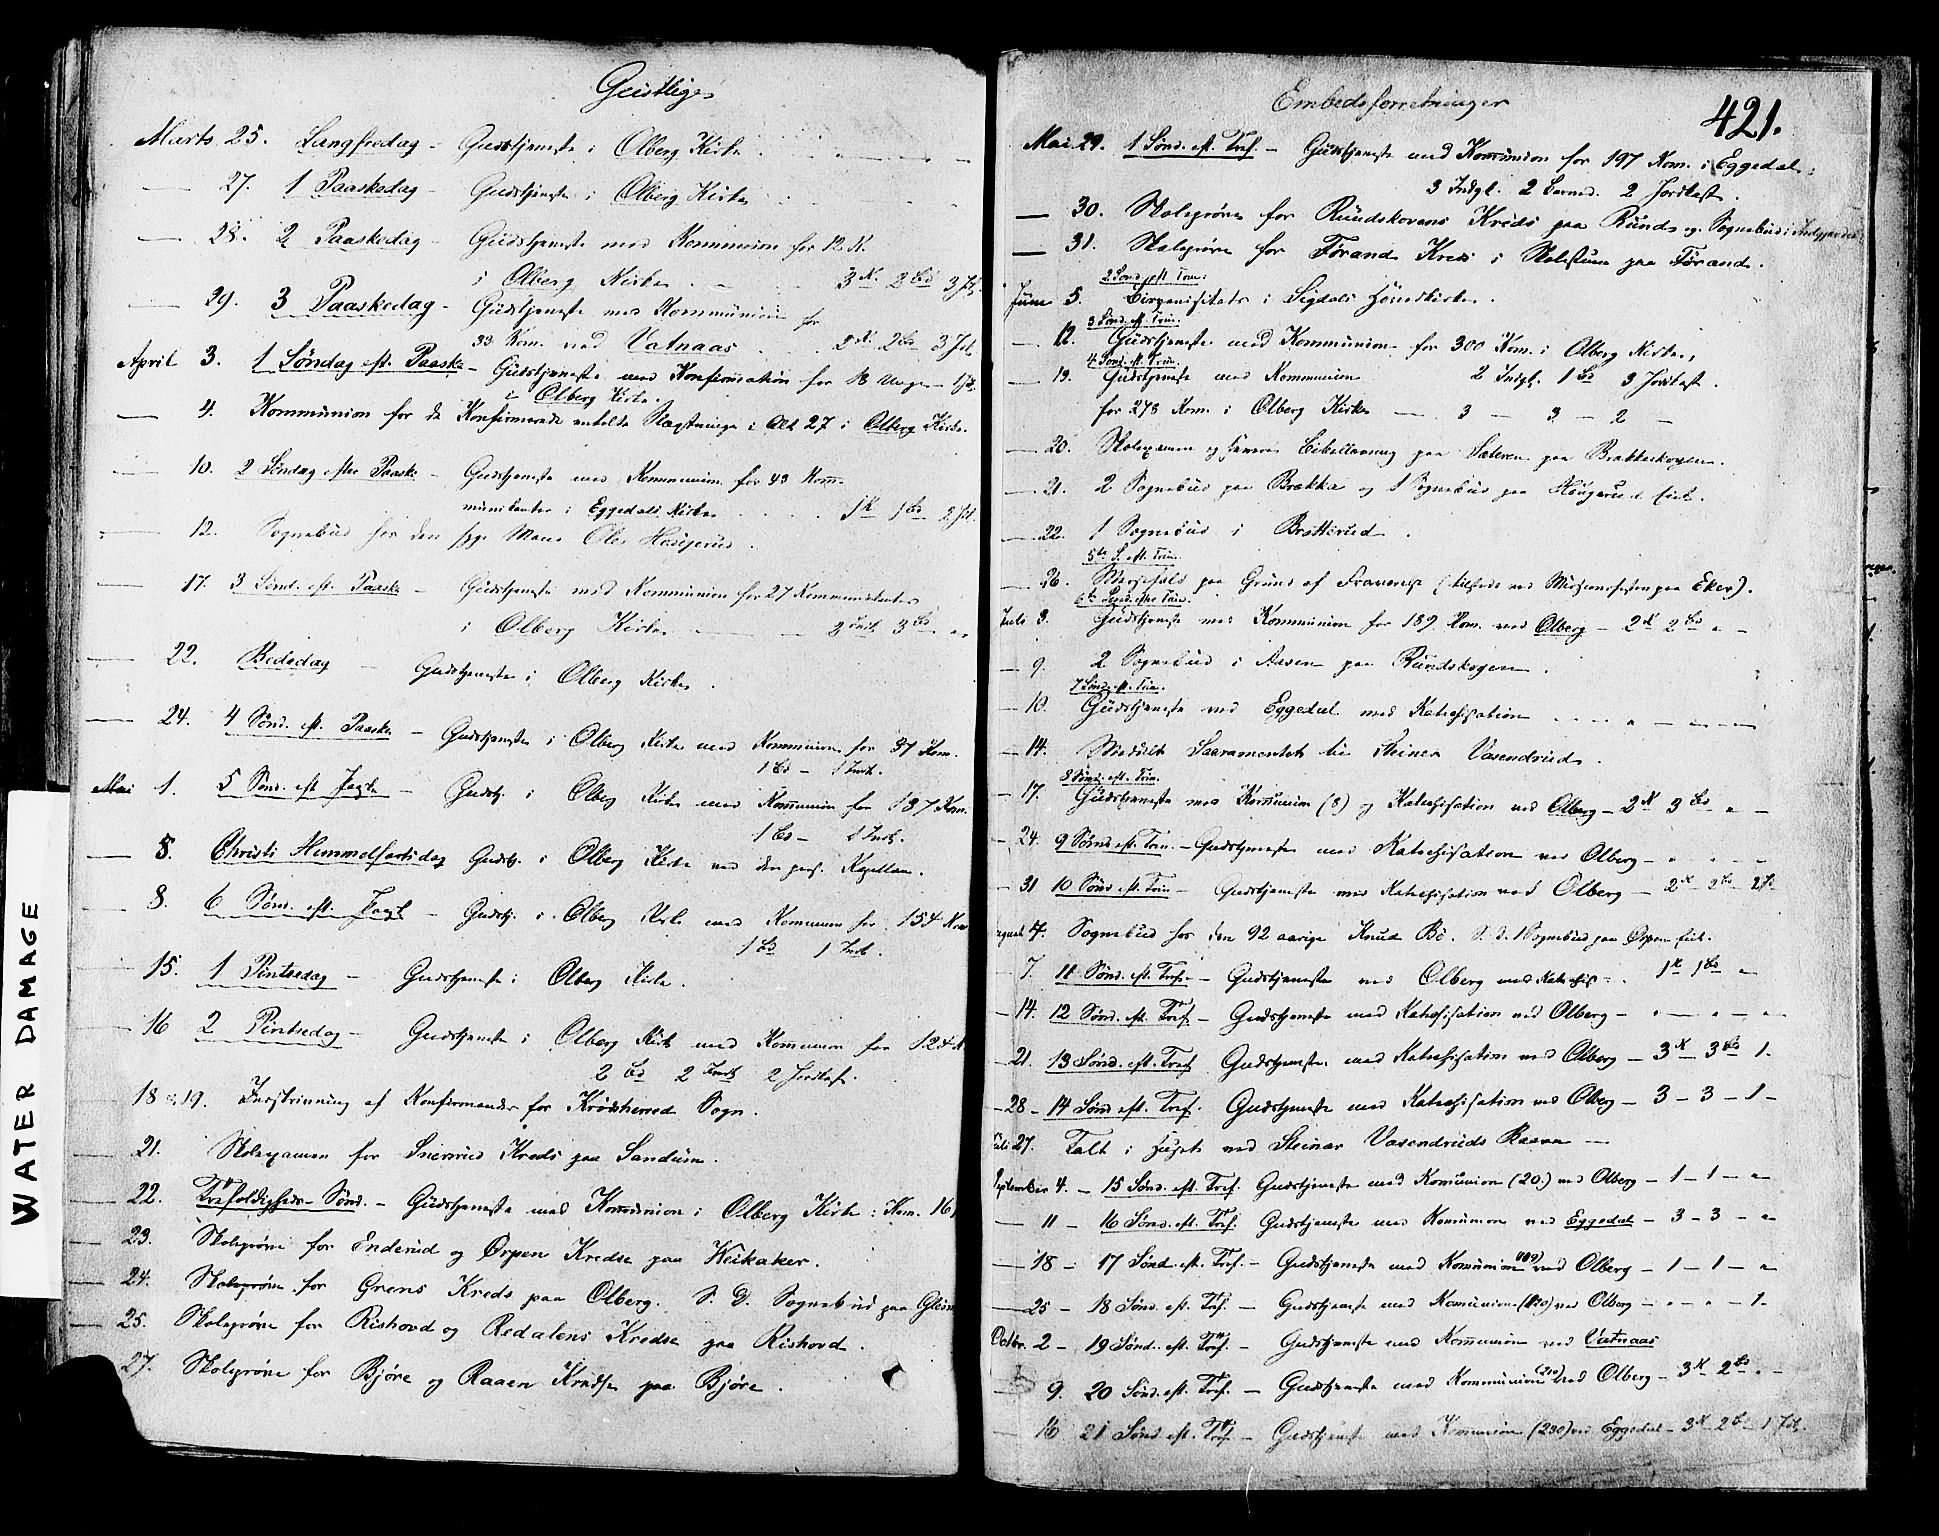 Geistlige
Marts 25. Langfredag - Gudstjeneste i Olberg Kirke
27. 1 Paaskedag - Gudstjeneste i Olberg Kirke
28. 2 Paaskedag - Gudstjeneste med Kommunion for 12 K.
i Olberg Kirke 3 K. 2 Bd 3 Jdk.
29. 3 Paaskedag - Gudstjeneste med Kommunion for
33 Kom. ved Vatnaas 2 K. 2 Bd 3 Jdk.
April 3. 1 Søndag eft. Paaske - Gudstjeneste med Konfirmation for 18 Unge
i Olberg Kirke.
4. Kommunion for de Konfirmerede enkelte Slægtninge i Alt 27 i Olberg Kirke.
10. 2 Søndag efter Paaske - Gudstjeneste med Kommunion for 43 Kom-
munikanter i Eggedals Kirke 1 K 1 Bd 2 Jdk.
12. Sognebud hos den syge Mand Ole Haugerud.
17. 3 Sønd. eft. Paaske - Gudstjeneste med Kommunion for 27 Kommunikanter
i Olberg Kirke 3 Bd
22. Bededag - Gudstjeneste i Olberg Kirke.
24. 4 Sønd. eft. Paaske - Gudstjeneste i Olberg Kirke med Kommunion for 37 Kom.
1 Bd - 1 Intr.
Mai 1. 5 Sønd. eft - Gudstj. i Olberg Kirke med Kommunion for 137 Kom.
1 Bd - 1 Intr.
5. Christi Himmelfartsdag Gudstj. i Olberg Kirke ved den pers. Kapellan.
8. 6 Sønd. eft. - Gudstj. i Olberg Kirke med Kommunion for 154 Kom
1 Bd 1 Intr.
15. 1 Pintsedag - Gudstjeneste i Olberg Kirke.
16 2 Pintsedag - Gudstjeneste i Olberg Kirke med Kommunion for 124 K
2 Bd 2 Intr. 2 Jordkast.
18 & 19. Indskrivning af Konfirmander for Krødsherred Sogn.
21. Skolexamen for Snerud Kreds paa Sandum.
22. Trefoldigheds-Sønd. - Gudstjeneste med Kommunion i Olberg Kirke: Kom. 16
23. Skoleprøve for Enderud og Ørpen Kredse paa Weikaker.
24. Skoleprøve for Grens Kreds paa Olberg. S. D. Sognebud paa
25. Skoleprøve for Rishovd og Redalens Kredse paa Rishovd.
27. Skoleprøve for Bjøre og Raaen Kredse paa Bjøre.
Embedsforretninger
421.
Mai 29. 1 Sønd. eft. Tref. - Gudstjeneste med Kommunion for 197 Kom. i Eggedal:
3 Indgl. 2 Barned. 2 Jordkast.
30. Skoleprøve for Rundskovens Kreds paa Runds og Sognebud i
31. Skoleprøve for Førand Kreds i Skolestuen paa Førand.
2 Sønd eft Trin:
Juni 5. Bispevisitats i Sigdals Hovedkirke.
3 Sønd. eft. Trin.
12. Gudstjeneste med Kommunion for 300 Kom. i Olberg Kirke;
4 Sønd. eft. Trin. 2 Indgl. 1 Bd 3 Jordkast.
19. Gudstjeneste med Kommunion
for 278 Kom. i Olberg Kirke - 3 - 3 - 2 -
20. Skolexamen og senere Bibellæsning paa Sæteren paa Brækkeskogen.
21. 2 Sognebud paa Brække og 1 Sognebud paa Haugerud Eiet.
22. 1 Sognebud i Bratterud.
5te S. eft. Trin.
26. Messefald paa Grund af Fraværelse (tilstede ved Missionsfesten paa Eker).
6te Sønd. efter Trin.
Juli 3. Gudstjeneste med Kommunion for 189 Kom. ved Olberg - 2 K 2 Bd " -
9. 2 Sognebud i Aasen paa Rundskogen.
7 Sønd. eft. Trin.
10. Gudstjeneste ved Eggedal med Katechisation
14. Meddelt Sacramentet til Steiner Vasendrud.
8 Sønd. eft. Trin.
17. Gudstjeneste med Kommunion (8) og Katechisation ved Olberg - 2 K 3 Bd " -
24. 9 Sønd eft. Trin. - Gudstjeneste med Katechisation ved Olberg -
31 10 Sønd eft. Trin - Gudstjeneste med Katechisation ved Olberg - 2 K 2 Bd 2 Jk
August 4. Sognebud hos den 92 aarige Knud Bø. S. D. 1 Sognebud paa Ørpen Eiet.
7. 11 Sønd. eft. Tref. - Gudstjeneste ved Olberg med Katechis - 1 K 1 Bd "
14. 12 Sønd. eft. Tref - Gudstjeneste med Katechisation ved Olberg - " - " - " -
21. 13 Sønd. eft. Tref Gudstjeneste med Katechisation ved Olberg - 3 K 3 Bd 1 -
28 - 14 Sønd eft. Tref. Gudstjeneste med Katechisation ved Olberg - 3 - 3 - 1 -
Juli 27. Talt i Huset ved Steinar Vasendruds Baare -
September 4. - 15 Sønd. eft. Tref. Gudstjeneste med Kommunion (20.) ved Olberg - 1 - 1 - "
11 - 16 Sønd. eft. Tref. Gudstjeneste med Kommunion ved Eggedal - 3 - 3 - "
18 - 17 Sønd. eft. Tref. - Gudstjeneste med Kommunion ved Olberg - 1 - 1 - "
25 - 18 Sønd. eft. Tref - Gudstjeneste med Kommunion (120) ved Olberg - " - " - 1 -
Octbr. 2 - 19 Sønd. eft. Tref. - Gudstjeneste med Kommunion ved Vatnaas
9. 20 Sønd. eft. Tref. - Gudstjeneste med Kommunion (210) ved Olberg - 3 K 2 Bd " -
16 21 Sønd eft. Tref - Gudstjeneste med Kommunion (230) ved Eggedal - 3 K 2 Bd 1 Jdk.
WATER DAMAGE